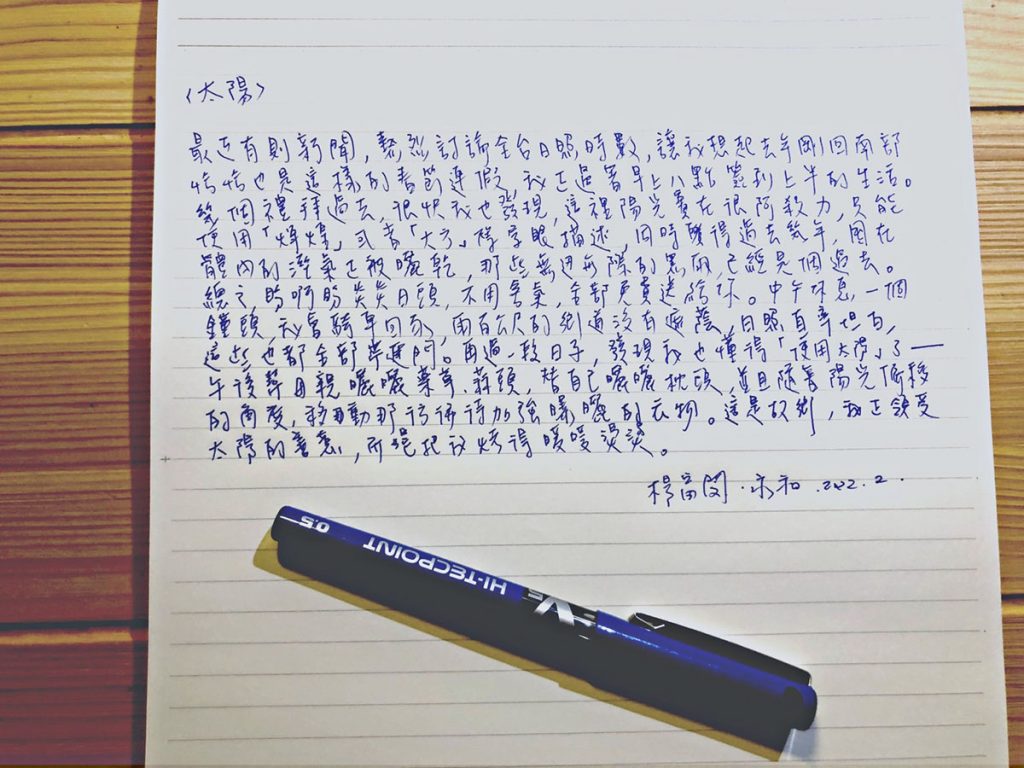 〈太陽〉
最近有則新聞，熱烈討論全台日照時數，讓我想起去年剛回南部
恰恰也是這樣的春節連假，我正過著早上八點起到上午的生活。
幾個禮拜過去，很快我也發現，這裡陽光實在很阿殺力，只能
使用「燁燁」或者「大方」樣字眼描述，同時覺得過去幾年，困在
體內的溼氣正被曬乾，那些無邊無際的黑雨，已經是個過去。
總之盼啊盼炎炎日頭，不用客氣，全部免費送給你。中午休息一個
鐘頭，我會騎車回家，兩百公尺的鄉道沒有遮蔭，日照直率坦白，
這些也都全部算進門。再過一段日子，發現我也懂得「使用太陽」了——
午後幫母親曬曬菜草、蒜頭，替自己曬曬枕頭，並且隨著陽光偏移
的角度，移動那彷彿待加強曝曬的衣物。這是故鄉，我正領受
太陽的善意，所 把我烤得暖暖燙燙。
楊富閔．永和．2022．2．
HI-TECPOINT
0.5
V5